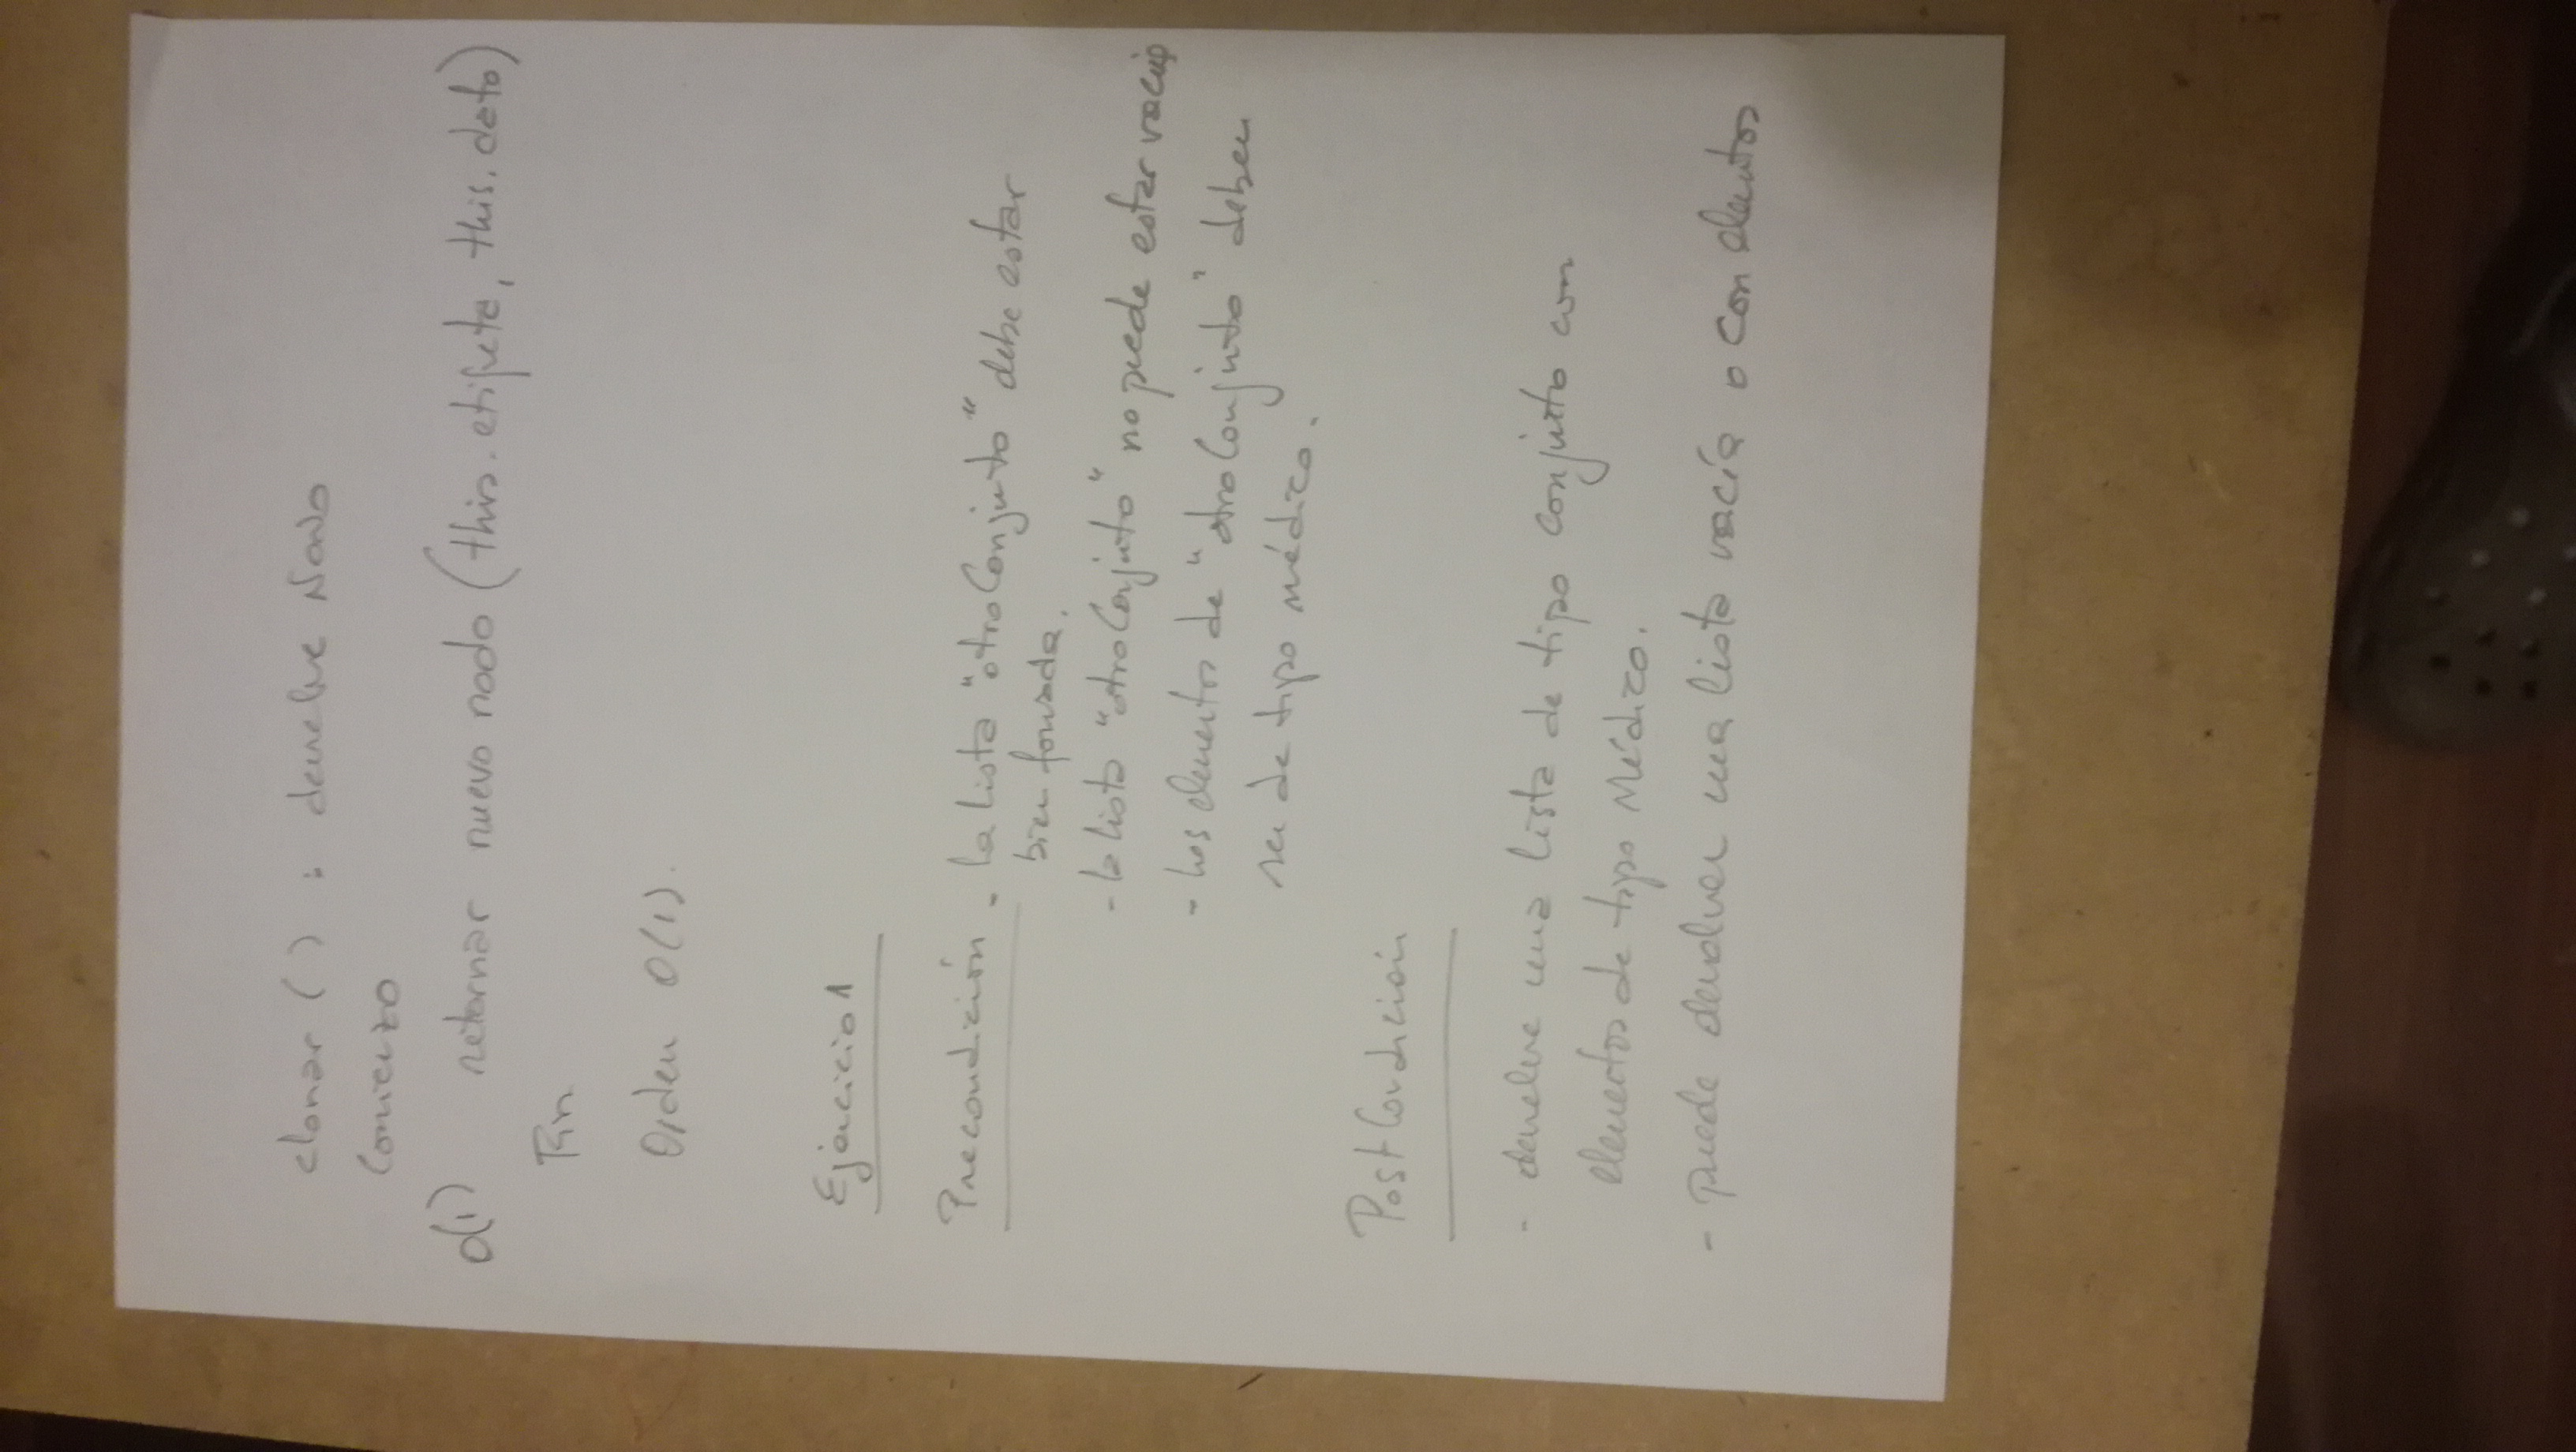 clonar ( ) : devuelve Nodo
Comienzo
O(1) retornar nuevo nodo (this.etiqueta, this.dato)
Fin
Orden O(1).
Ejercicio 1
Precondición - La Lista "otroConjunto" debe estar
bien formada.
- la lista "otroConjunto" no puede estar vacía
- Los elementos de "otroConjunto" deben
ser de tipo médico.
PostCondición
- devuelve una Lista de tipo conjunto con
elementos de tipo Médico.
- puede devolver una lista vacía o con elementos